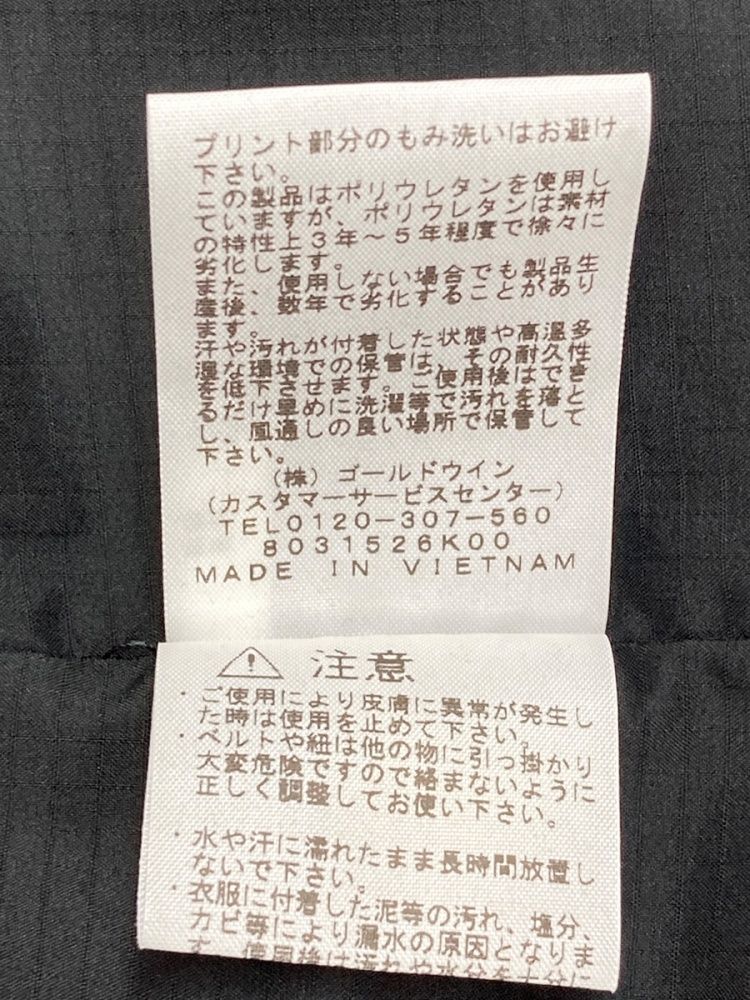 プリント部分のもみ洗いはお避け
下さい。
この製品はポリウレタンを使用し
ていますが、ポリウレタンは素材
の特性上3年～5年程度で徐々に
劣化します。
また、使用しない場合でも製品生
産後、数年で劣化することがあり
ます。
汗や汚れが付着した状態や高温多
湿な環境での保管は、その耐久性
を低下させます。ご使用後はでき
るだけ早めに洗濯等で汚れを落と
し、風通しの良い場所で保管して
下さい。
(株)ゴールドウイン
(カスタマーサービスセンター)
TEL0120-307-560
8031526K00
MADE IN VIETNAM
注意
・ご使用により皮膚に異常が発生し
た時は使用を止めて下さい。
・ベルトや紐は他の物に引っ掛かり
大変危険ですので絡まないように
正しく調整してお使い下さい。
・水や汗に濡れたまま長時間放置し
ないで下さい。
・衣服に付着した泥等の汚れ、塩分、
カビ等により漏水の原因となりま
す。使用後は汚れや水分を十分に